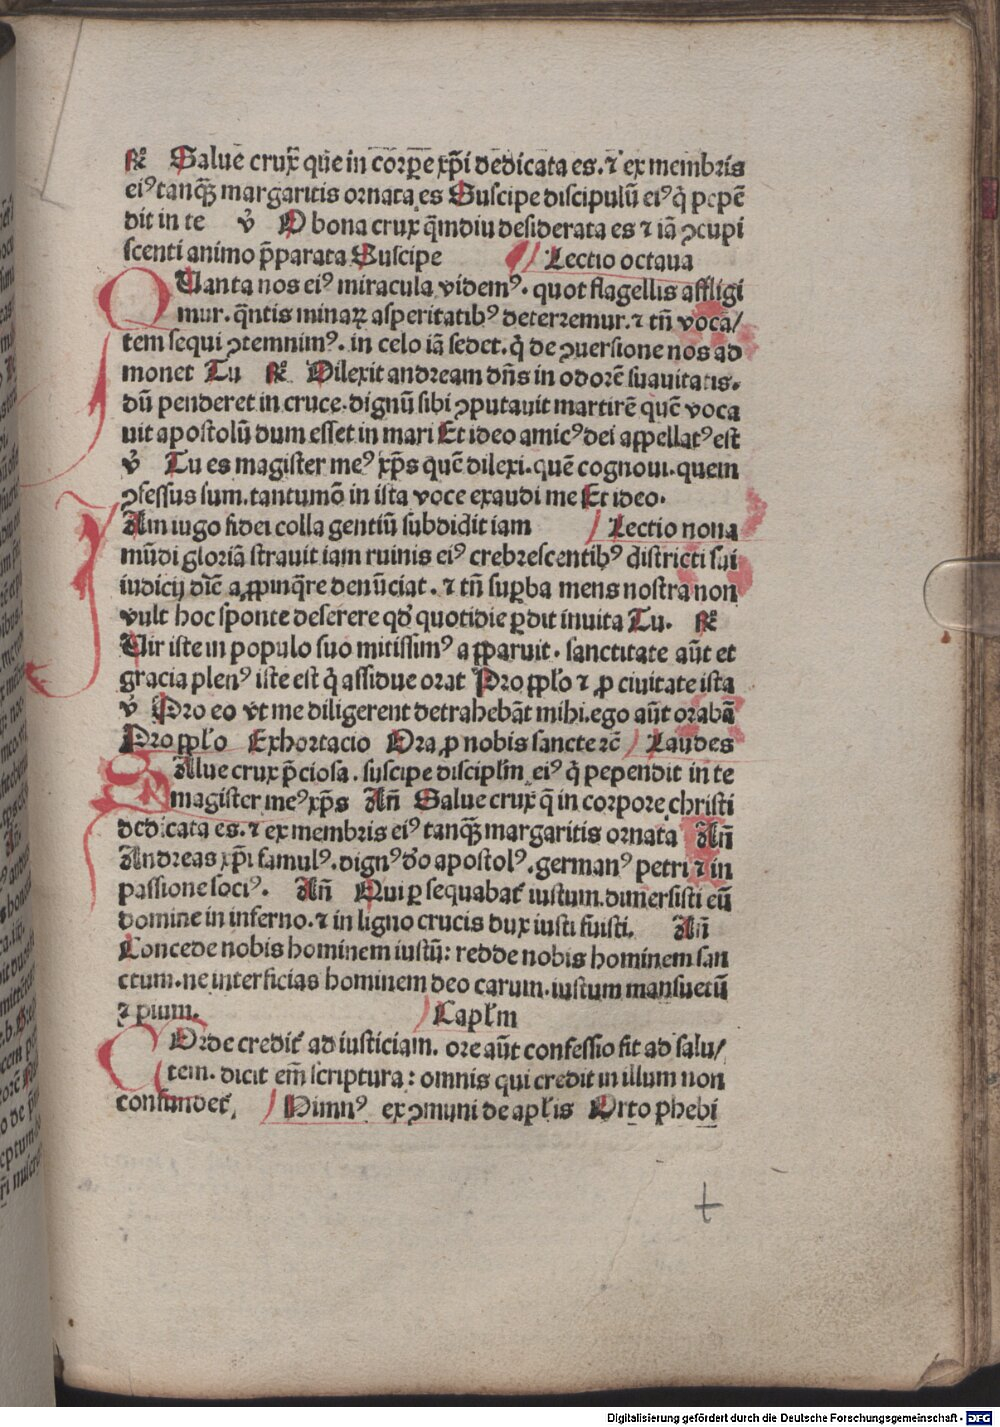 ℟ Salue crux que in corpore xp̄i dedicata es. ⁊ ex membris
eiꝰ tanqꝫ margaritis ornata es Suscipe discipulū eiꝰ q̄ pepē
dit in te ℣ O bona crux q̄mdiu desiderata es ⁊ iā ꝯcupi
scenti animo p̄parata Suscipe Lectio octaua
QUanta nos eiꝰ miracula videmꝰ. quot flagellis affligi
mur. q̄ntis minaꝝ asperitatibꝰ deterremur. ⁊ tn̄ vocā/
tem sequi ꝯtemnimꝰ. in celo iā sedet. q̄ de ꝯuersione nos ad
monet Tu ℟ Dilexit andream dn̄s in odorē suauitatis.
dū penderet in cruce. dignū sibi ꝯputauit martirē quē voca
uit apostolū dum esset in mari Et ideo amicꝰ dei appellatꝰ est
℣ Tu es magister meꝰ xp̄s quē dilexi. quē cognoui. quem
ꝯfessus sum. tantumō in ista voce exaudi me Et ideo.
IAm iugo fidei colla gentiū subdidit iam Lectio nona
mūdi gloriā strauit iam ruinis eiꝰ crebrescentibꝰ districti sui
iudicij diē appinq̄re denūciat. ⁊ tn̄ suꝑba mens nostra non
vult hoc sponte deserere qd̓ quotidie ꝑdit inuita Tu. ℟
Uir iste in populo suo mitissimꝰ apparuit. sanctitate aūt et
gracia plenꝰ iste est q̄ assidue orat Pro pplo ⁊ ꝓ ciuitate ista
℣ Pro eo vt me diligerent detrahebāt mihi. ego aūt orabā
Pro pplo Exhortacio Ora ꝓ nobis sancte ⁊cē Laudes
SAlue crux p̄ciosa. suscipe discipl̄m eiꝰ q̄ pependit in te
magister meꝰ xp̄s An̄ Salue crux q̄ in corpore christi
dedicata es. ⁊ ex membris eiꝰ tanqꝫ margaritis ornata An̄
Andreas xp̄i famulꝰ. dignꝰ do apostolꝰ. germanꝰ petri ⁊ in
passione sociꝰ. An̄ Qui ꝑsequabat̄ iustum. dimersisti eū
domine in inferno. ⁊ in ligno crucis dux iusti fuisti. An̄
Concede nobis hominem iustū: redde nobis hominem san
ctum. ne interficias hominem deo carum. iustum mansuetū
⁊ pium. Capl̄m
COrde credit̄ ad iusticiam. ore aūt confessio fit ad salu/
tem. dicit em̄ scriptura: omnis qui credit in illum non
confundet̄. Himnꝰ ex ꝯmuni de apl̄is Orto phebi
t
Digitalisierung gefördert durch die Deutsche Forschungsgemeinschaft - DFG